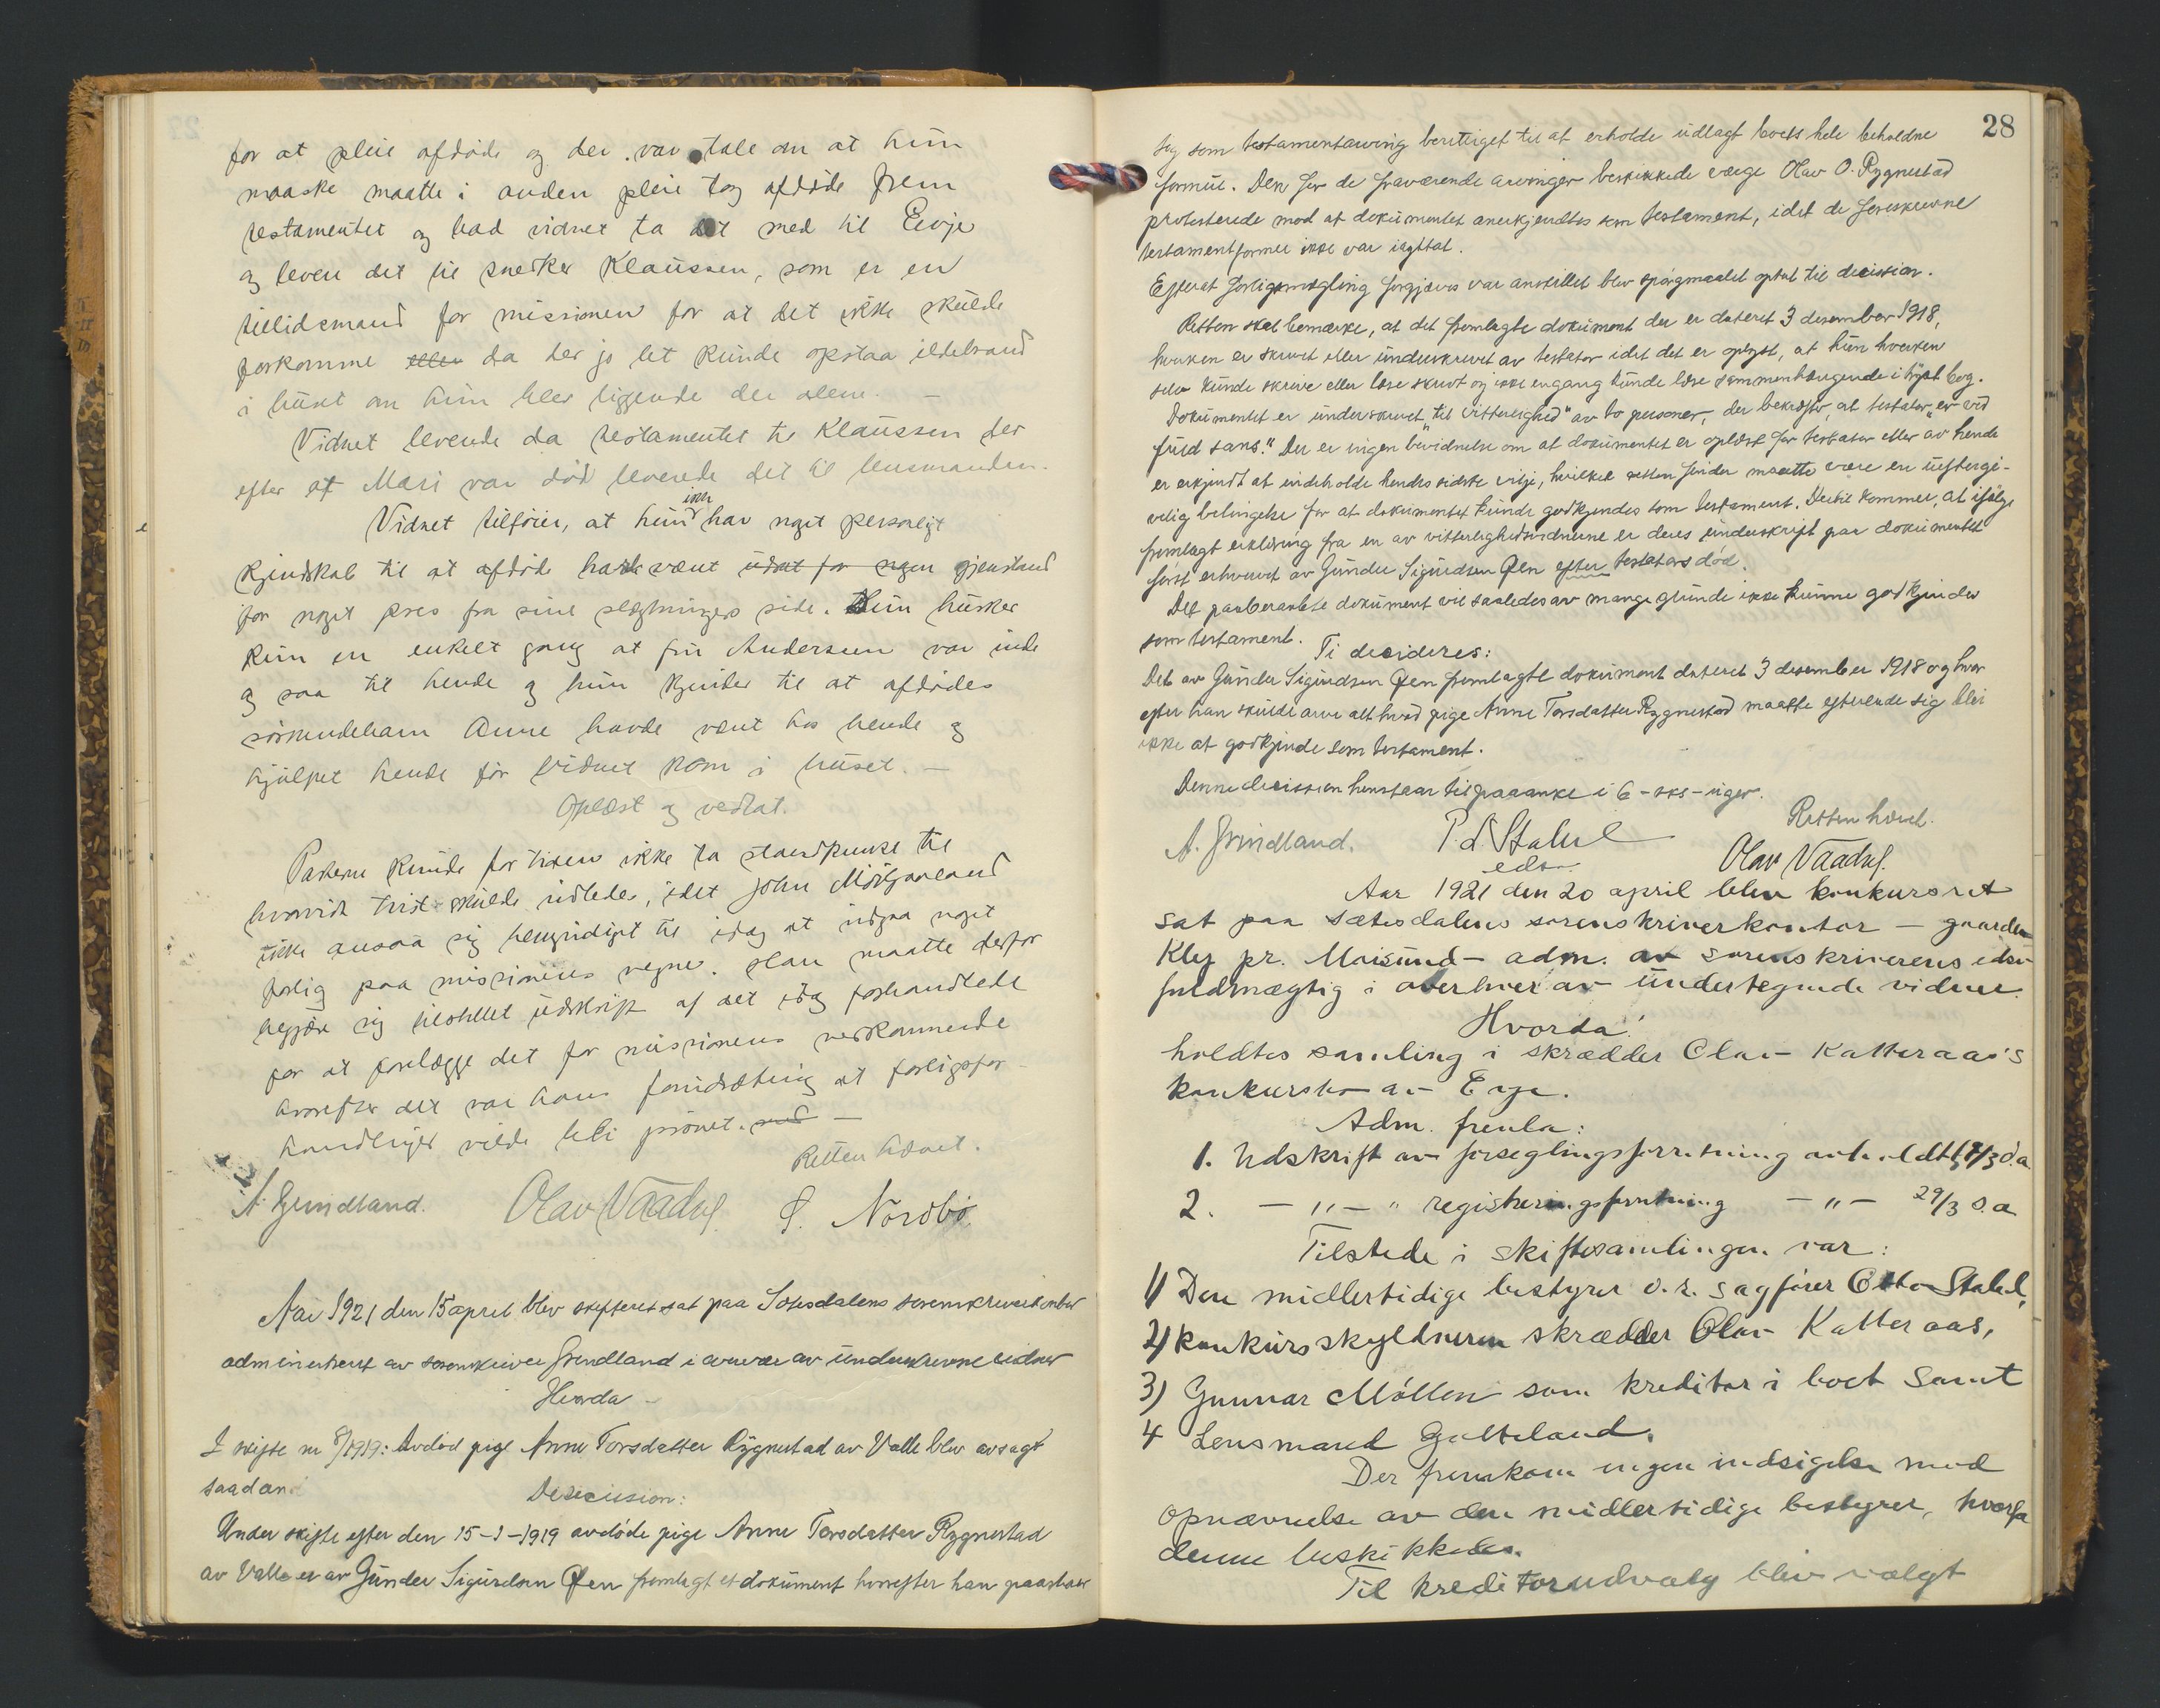 for at pleie afdøde og der var tale om at hun
maaske maatte i anden pleie tog afdøde frem
testamentet og bad vidnet ta det med til Eivje
og levere det til snedker Klaussen, som er en
tillidsmand for missionen for at det ikke skulde
forkomme eller da der jo let kunde opstaa ildebrand
i huset om hun blev liggende der alene. —
Vidnet leverte da testamentet til Klaussen der
efter at Mari var død leverede det til lensmanden.
Vidnet tilføier, at hun ikke har noget personligt
kjendskab til at afdøde hadde været udsat for nogen gjenstand
for noget pres fra sine slægtninges side. Hun husker
kun en enkelt gang at fru Andersen var inde
og saa til hende og hun kjender til at afdødes
søskendebarn Anne havde været hos hende og
hjulpet hende før vidnet kom i huset. —
Oplæst og vedtat.
Parterne kunde for tiden ikke ta standpunkt til
hvorvidt tvist skulde udledes, idet John Mölgaarland
ikke ansaa sig bemyndiget til idag at indgaa noget
forlig paa missionens vegne. Han maatte derfor
begjære sig tilstillet udskrift af det idag forhandlede
for at forelægge det for missionens vedkommende
hvorefter det var hans forudsætning at forligsfor-
handlinger vilde bli prøvet. med —
Retten hævet.
A. Grindland. Olav Vaadne S. Nordbø
Aar 1921 den 15 april blev skifteret sat paa Sætesdalens sorenskriverkontor
administrert av sorenskriver Grindland i overvær av underskrevne vidner
Hvorda —
I skifte nr 8/1919: Avdød pige Anne Torsdatter Rygnestad av Valle blev avsagt
saadan
Desicission:
Under skifte efter den 15-1-1919 avdøde pige Anne Torsdatter Rygnestad
av Valle er av Gunder Sigurdsen Øen fremlagt et dokument hvorefter han paastaar
28
sig som testamentarving berettiget til at erholde utlagt boets hele beholdne
formue. Den for de fraværende arvinger beskikkede værge Olav O. Rygnestad
protesterede mod at dokumentet anerkjendtes som testament, idet de foreskrevne
testamentformer ikke var iagttat.
Efterat forligsmægling forgjæves var anstillet blev spørgsmaalet optat til decission.
Retten skal bemærke, at det fremlagte dokument der er dateret 3 desember 1918,
hverken er skrevet eller underskrevet av testator idet det er oplyst, at hun hverken
selv kunde skrive eller læse skrevet og ikke engang kunde læse sammenhængende i trykt bog.
Dokumentet er underskrevet „til vitterlighed" av to personer, der bekræfter, at testator „er ved
fuld sans." Der er ingen bevidnelse om at dokumentet er oplæst for testator eller av hende
er erkjendt at indeholde hendes sidste vilje, hvilket retten finder maatte være en ueftergi-
velig betingelse for at dokumentet kunde godkjendes som testament. Hertil kommer, at ifølge
fremlagt erklæring fra en av vitterlighedsvidnerne er deres underskrift paa dokumentet
først erhvervet av Gunder Sigurdsen Øen efter testators død.
Det paaberaabte dokument vil saaledes av mange grunde ikke kunne godkjendes
som testament.
Ti decideres:
Det av Gunder Sigurdsen Øen fremlagte dokument dateret 3 desember 1918 og hvor
efter han skulde arve alt hvad pige Anne Torsdatter Rygnestad maatte efterlade sig blir
ikke at godkjende som testament.
Denne decission henstaar til paaanke i 6 - seks - uger.
Retten hævet.
A. Grindland. P d Stabel Olav Vaadne.
eds.
Aar 1921 den 20 april blev konkursret
sat paa Sætesdalens sorenskriverkontor — gaarden
Kley pr. Moisund — adm. av sorenskriverens edsv
fuldmægtig i overvær av undertegnede vidner.
Hvorda:
holdtes samling i skrædder Olav Katteraas's
konkursbo av Evje.
Adm. fremla:
1. Udskrift av forseglingsforretning avholdt 17/3 d.a.
2. — „ — „ registreringsforretning — „ — 29/3 d.a
Tilstede i skiftesamlingen var:
1) Den midlertidige bestyrer o.r. sagfører Otto Stabel,
2) Konkursskyldneren skrædder Olav Katteraas,
3) Gunnar Möllen som kreditor i boet samt
4 Lensmand Galteland.
Der fremkom ingen indsigelse mod
opnævnelse av den midlertidige bestyrer, hvorfor
denne beskikkedes.
Til kreditorudvalg blev valgt